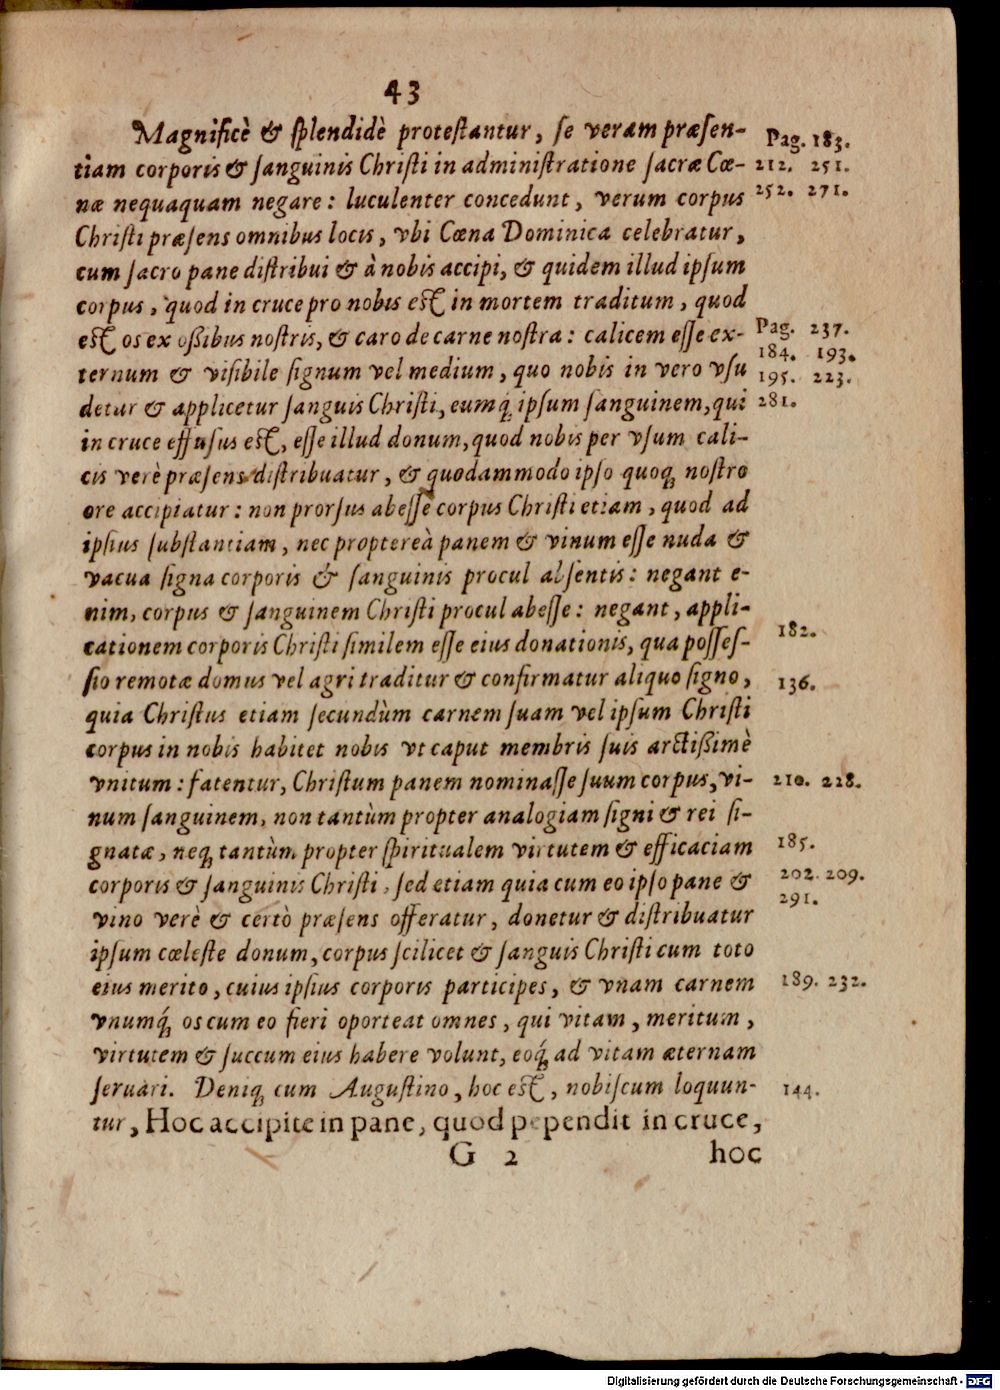 43
Magnificè & splendidè protestantur, se veram præsen- Pag. 183.
tiam corporis & sanguinis Christi in administratione sacræ Cœ- 212. 251.
næ nequaquam negare: luculenter concedunt, verum corpus 252. 271.
Christi præsens omnibus locis, vbi Cœna Dominica celebratur,
cum sacro pane distribui & à nobis accipi, & quidem illud ipsum
corpus, quod in cruce pro nobis est in mortem traditum, quod
est os ex oßibus nostris, & caro de carne nostra: calicem esse ex- Pag. 237.
ternum & visibile signum vel medium, quo nobis in vero vsu 184. 193.
detur & applicetur sanguis Christi, eumq́; ipsum sanguinem, qui 195. 223.
in cruce effusus est, esse illud donum, quod nobis per vsum cali- 281.
cis verè præsens distribuatur, & quodammodo ipso quoq; nostro
ore accipiatur: non prorsus abesse corpus Christi etiam, quod ad
ipsius substantiam, nec proptereà panem & vinum esse nuda &
vacua signa corporis & sanguinis procul absentis: negant e-
nim, corpus & sanguinem Christi procul abesse: negant, appli-
cationem corporis Christi similem esse eius donationis, qua posses- 182.
sio remotæ domus vel agri traditur & confirmatur aliquo signo, 136.
quia Christus etiam secundùm carnem suam vel ipsum Christi
corpus in nobis habitet nobis vt caput membris suis arctißimè
vnitum: fatentur, Christum panem nominasse suum corpus, vi- 210. 228.
num sanguinem, non tantùm propter analogiam signi & rei si-
gnatæ, neq; tantùm propter spiritualem virtutem & efficaciam 185.
corporis & sanguinis Christi, sed etiam quia cum eo ipso pane & 202. 209.
vino verè & certò præsens offeratur, donetur & distribuatur 291.
ipsum cœleste donum, corpus scilicet & sanguis Christi cum toto
eius merito, cuius ipsius corporis participes, & vnam carnem 189. 232.
vnumq́; os cum eo fieri oporteat omnes, qui vitam, meritum,
virtutem & succum eius habere volunt, eoq́; ad vitam æternam
seruari. Deniq; cum Augustino, hoc est, nobiscum loquun- 144.
tur, Hoc accipite in pane, quod pependit in cruce,
G 2 hoc
Digitalisierung gefördert durch die Deutsche Forschungsgemeinschaft - DFG